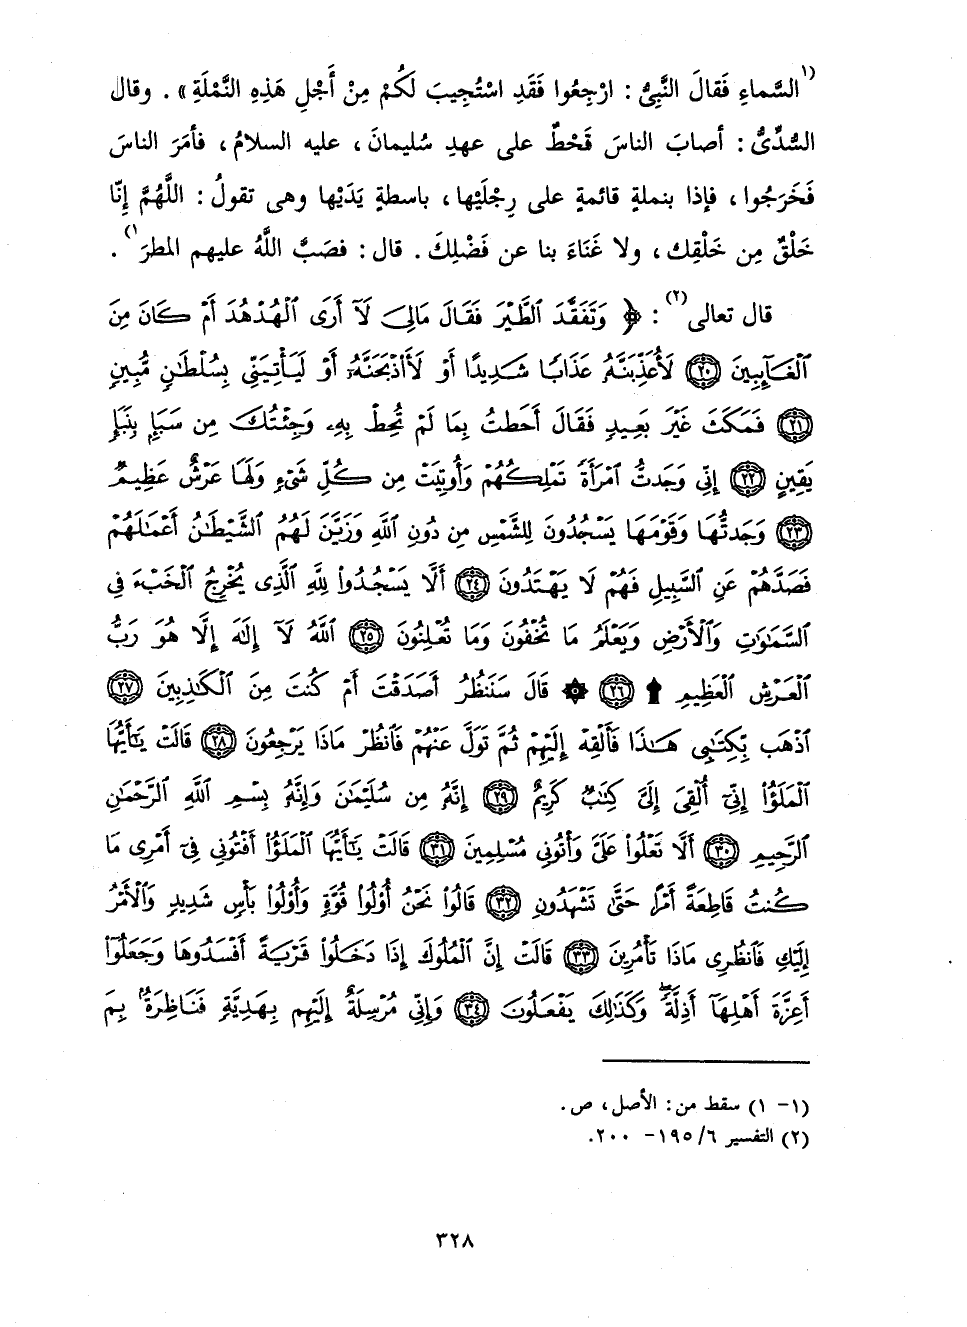 ⁽¹السَّماءِ فَقالَ النَّبِىُّ : ارْجِعُوا فَقَدِ اسْتُجِيبَ لَكُمْ مِنْ أَجْلِ هَذِهِ النَّمْلَةِ » . وقال
السُّدِّىُّ : أصابَ الناسَ قَحْطٌ على عهدِ سُليمانَ ، عليه السلامُ ، فأمَرَ الناسَ
فَخَرَجُوا ، فإذا بنملةٍ قائمةٍ على رِجْلَيْها ، باسطةٍ يَدَيْها وهى تقولُ : اللَّهُمَّ إِنَّا
خَلْقٌ مِن خَلْقِك ، ولا غَنَاءَ بنا عن فَضْلِكَ . قال : فصَبَّ اللَّهُ عليهم المطرَ¹⁾ .
قال تعالى⁽²⁾ : ﴿ وَتَفَقَّدَ ٱلطَّيْرَ فَقَالَ مَالِىَ لَآ أَرَى ٱلْهُدْهُدَ أَمْ كَانَ مِنَ
ٱلْغَآئِبِينَ ﴿٢٠﴾ لَأُعَذِّبَنَّهُۥ عَذَابًا شَدِيدًا أَوْ لَأَا۟ذْبَحَنَّهُۥٓ أَوْ لَيَأْتِيَنِّى بِسُلْطَٰنٍ مُّبِينٍ
﴿٢١﴾ فَمَكَثَ غَيْرَ بَعِيدٍ فَقَالَ أَحَطتُ بِمَا لَمْ تُحِطْ بِهِۦ وَجِئْتُكَ مِن سَبَإٍۭ بِنَبَإٍ
يَقِينٍ ﴿٢٢﴾ إِنِّى وَجَدتُّ ٱمْرَأَةً تَمْلِكُهُمْ وَأُوتِيَتْ مِن كُلِّ شَىْءٍ وَلَهَا عَرْشٌ عَظِيمٌ
﴿٢٣﴾ وَجَدتُّهَا وَقَوْمَهَا يَسْجُدُونَ لِلشَّمْسِ مِن دُونِ ٱللَّهِ وَزَيَّنَ لَهُمُ ٱلشَّيْطَٰنُ أَعْمَٰلَهُمْ
فَصَدَّهُمْ عَنِ ٱلسَّبِيلِ فَهُمْ لَا يَهْتَدُونَ ﴿٢٤﴾ أَلَّا يَسْجُدُوا۟ لِلَّهِ ٱلَّذِى يُخْرِجُ ٱلْخَبْءَ فِى
ٱلسَّمَٰوَٰتِ وَٱلْأَرْضِ وَيَعْلَمُ مَا تُخْفُونَ وَمَا تُعْلِنُونَ ﴿٢٥﴾ ٱللَّهُ لَآ إِلَٰهَ إِلَّا هُوَ رَبُّ
ٱلْعَرْشِ ٱلْعَظِيمِ ۩ ﴿٢٦﴾ ۞ قَالَ سَنَنظُرُ أَصَدَقْتَ أَمْ كُنتَ مِنَ ٱلْكَٰذِبِينَ ﴿٢٧﴾
ٱذْهَب بِّكِتَٰبِى هَٰذَا فَأَلْقِهْ إِلَيْهِمْ ثُمَّ تَوَلَّ عَنْهُمْ فَٱنظُرْ مَاذَا يَرْجِعُونَ ﴿٢٨﴾ قَالَتْ يَٰٓأَيُّهَا
ٱلْمَلَؤُا۟ إِنِّىٓ أُلْقِىَ إِلَىَّ كِتَٰبٌ كَرِيمٌ ﴿٢٩﴾ إِنَّهُۥ مِن سُلَيْمَٰنَ وَإِنَّهُۥ بِسْمِ ٱللَّهِ ٱلرَّحْمَٰنِ
ٱلرَّحِيمِ ﴿٣٠﴾ أَلَّا تَعْلُوا۟ عَلَىَّ وَأْتُونِى مُسْلِمِينَ ﴿٣١﴾ قَالَتْ يَٰٓأَيُّهَا ٱلْمَلَؤُا۟ أَفْتُونِى فِىٓ أَمْرِى مَا
كُنتُ قَاطِعَةً أَمْرًا حَتَّىٰ تَشْهَدُونِ ﴿٣٢﴾ قَالُوا۟ نَحْنُ أُو۟لُوا۟ قُوَّةٍ وَأُو۟لُوا۟ بَأْسٍ شَدِيدٍ وَٱلْأَمْرُ
إِلَيْكِ فَٱنظُرِى مَاذَا تَأْمُرِينَ ﴿٣٣﴾ قَالَتْ إِنَّ ٱلْمُلُوكَ إِذَا دَخَلُوا۟ قَرْيَةً أَفْسَدُوهَا وَجَعَلُوٓا۟
أَعِزَّةَ أَهْلِهَآ أَذِلَّةً ۖ وَكَذَٰلِكَ يَفْعَلُونَ ﴿٣٤﴾ وَإِنِّى مُرْسِلَةٌ إِلَيْهِم بِهَدِيَّةٍ فَنَاظِرَةٌۢ بِمَ
(١- ١) سقط من : الأصل ، ص .
(٢) التفسير ٦/ ١٩٥- ٢٠٠.
٣٢٨